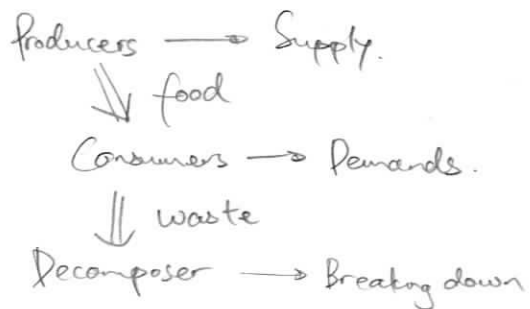 Producers → Supply.
food
Consumers → Demands.
waste
Decomposer → Breaking down